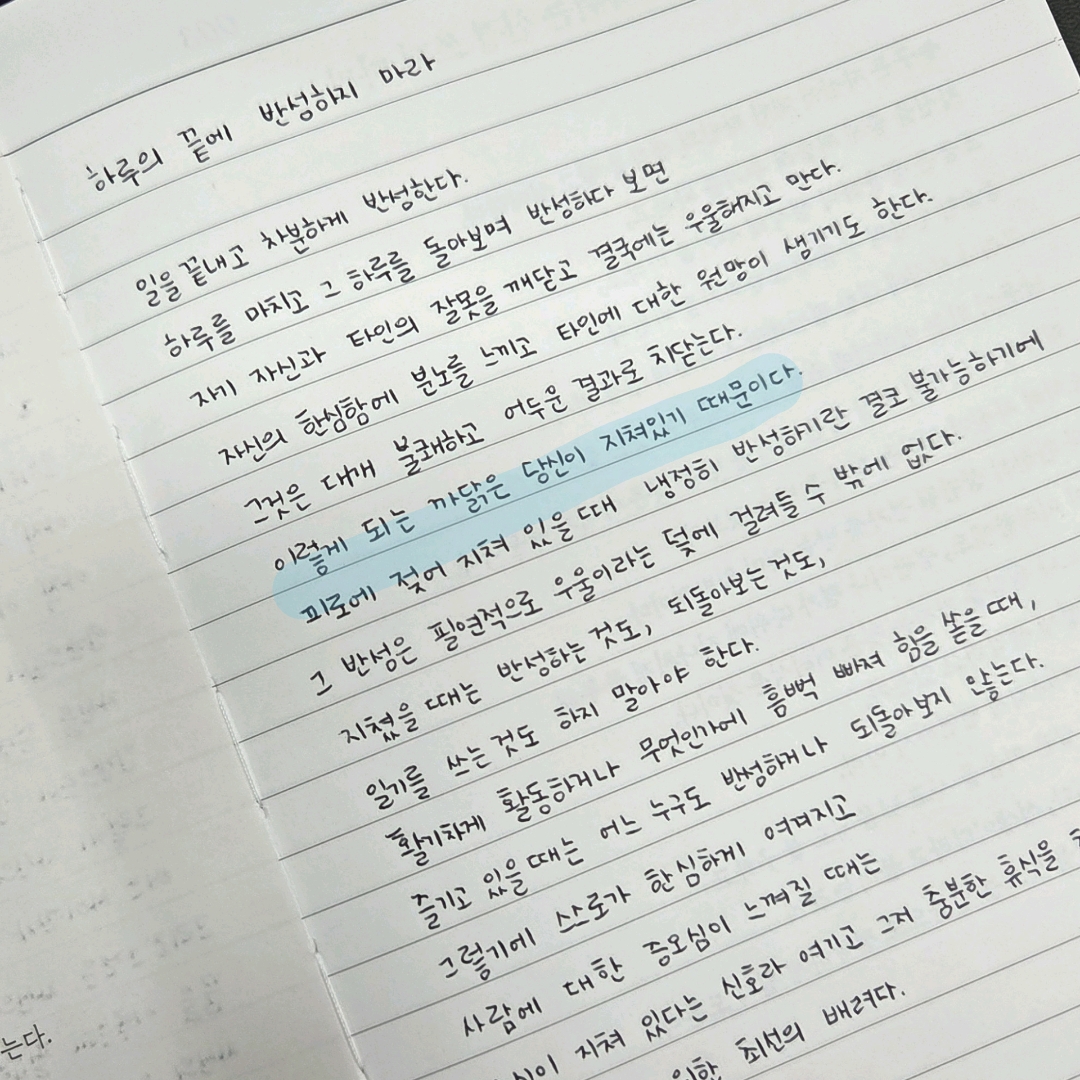 하루의 끝에 반성하지 마라
일을 끝내고 차분하게 반성한다.
하루를 마치고 그 하루를 돌아보며 반성하다 보면
자기 자신과 타인의 잘못을 깨닫고 결국에는 우울해지고 만다.
자신의 한심함에 분노를 느끼고 타인에 대한 원망이 생기기도 한다.
그것은 대개 불쾌하고 어두운 결과로 치닫는다.
이렇게 되는 까닭은 당신이 지쳐있기 때문이다.
피로에 젖어 지쳐 있을 때 냉정히 반성하기란 결코 불가능하기에
그 반성은 필연적으로 우울이라는 덫에 걸려들 수 밖에 없다.
지쳤을 때는 반성하는 것도, 되돌아보는 것도,
일기를 쓰는 것도 하지 말아야 한다.
활기차게 활동하거나 무엇인가에 흠뻑 빠져 힘을 쏟을 때,
즐기고 있을 때는 어느 누구도 반성하거나 되돌아보지 않는다.
그렇기에 스스로가 한심하게 여겨지고
사람에 대한 증오심이 느껴질 때는
지쳐 있다는 신호라 여기고 그저 충분한 휴식을
위한 최선의 배려다.
는다.